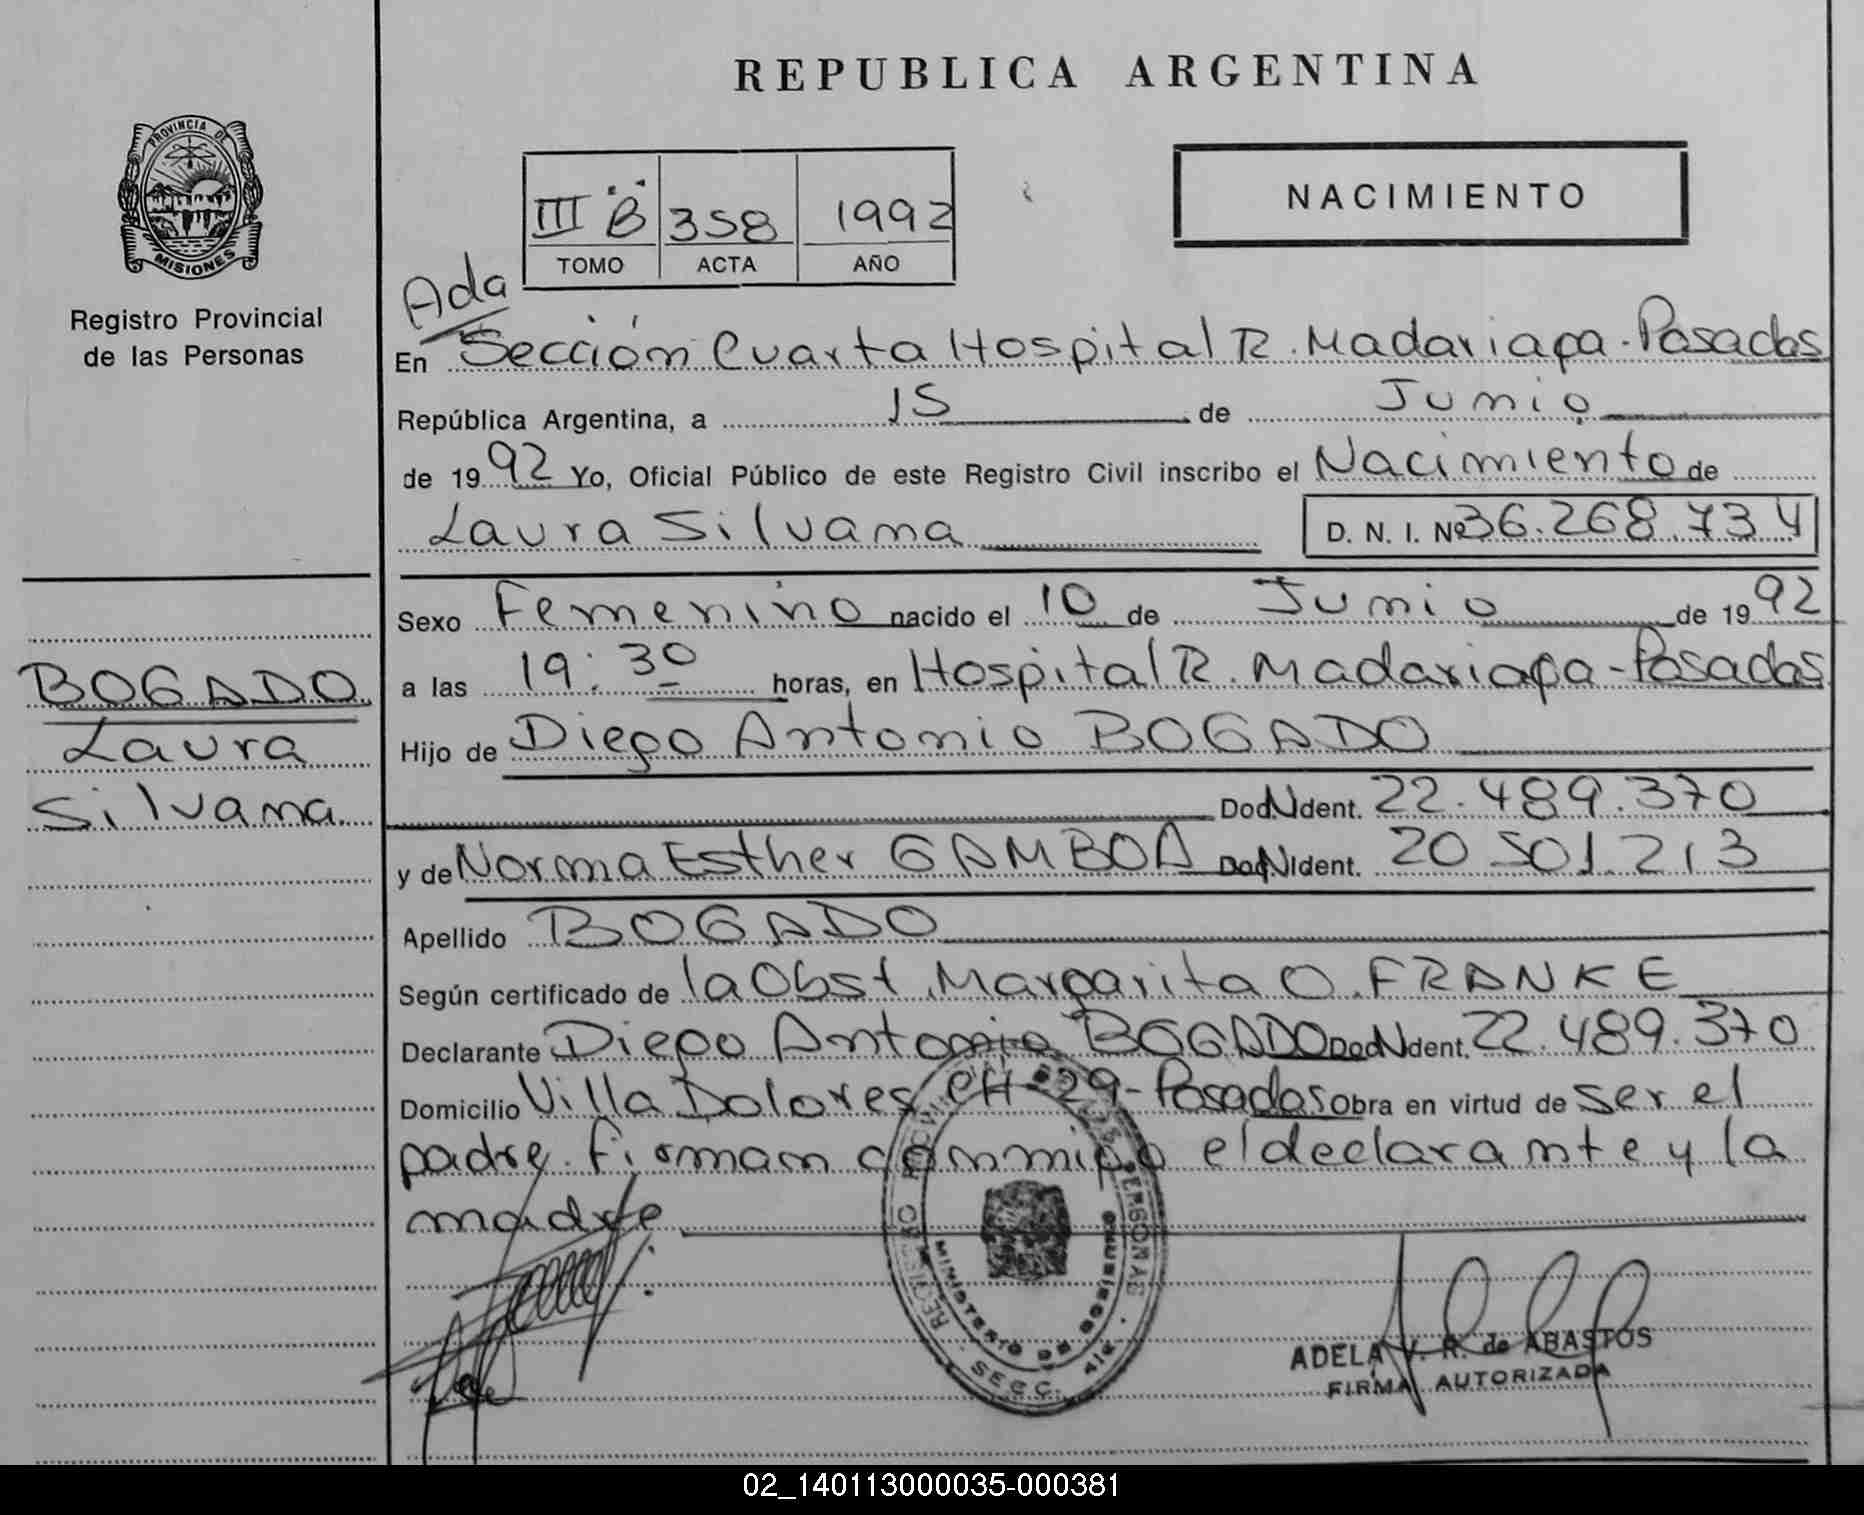 REPUBLICA ARGENTINA
PROVINCIA DE
MISIONES
Registro Provincial
de las Personas
III "B" 358 1992
TOMO ACTA AÑO
NACIMIENTO
Ada
En Sección Cuarta Hospital R. Madariaga - Posadas
República Argentina, a 15 de Junio
de 1992 Yo, Oficial Público de este Registro Civil inscribo el Nacimiento de
Laura Silvana D. N. I. Nº 36.268.734
Sexo Femenino nacido el 10 de Junio de 1992
a las 19:30 horas, en Hospital R. Madariaga - Posadas
Hijo de Diego Antonio BOGADO
Doc. Ident. 22.489.370
y de Norma Esther GAMBOA Doc. Ident. 20.501.213
Apellido BOGADO
Según certificado de la Obst. Margarita O. FRANKE
Declarante Diego Antonio BOGADO Doc. Ident. 22.489.370
Domicilio Villa Dolores, CH-29- Posadas obra en virtud de ser el
padre. Firman conmigo el declarante y la
madre
BOGADO
Laura
Silvana
MINISTERIO DE GOBIERNO
SECC. 4ta.
ADELA V. R. de ABASTOS
FIRMA AUTORIZADA
02_140113000035-000381